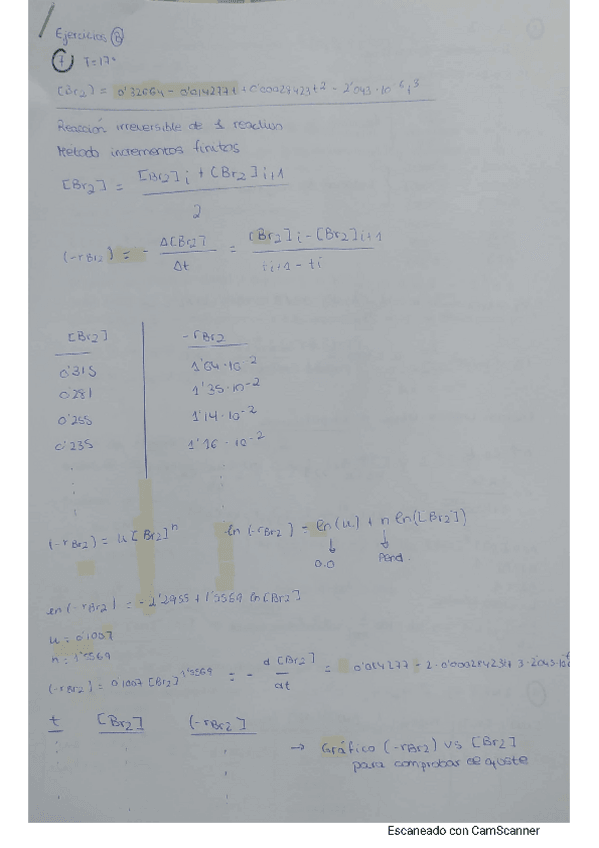 Ejercicios B
7 T=17º
[Br2] = 0'32664 - 0'014277t + 0'00028423t² - 2'043·10⁻⁶t³
Reacción irreversible de 1 reactivo
Metodo incrementos finitos
[Br2] = [Br2]i + [Br2]i+1 / 2
(-rBr2) = - Δ[Br2] / Δt = [Br2]i - [Br2]i+1 / ti+1 - ti
[Br2] -rBr2
0'315 1'64·10⁻²
0'281 1'35·10⁻²
0'255 1'14·10⁻²
0'235 1'16·10⁻²
(-rBr2) = k[Br2]ⁿ ln(-rBr2) = ln(k) + n ln([Br2])
O.O Pend.
ln(-rBr2) = -2'2955 + 1'5569 ln[Br2]
k = 0'1007
n = 1'5569
(-rBr2) = 0'1007 [Br2]^1'5569 = - d[Br2] / dt =
t [Br2] (-rBr2)
→ Gráfico (-rBr2) vs [Br2]
para comprobar de ajuste
Escaneado con CamScanner